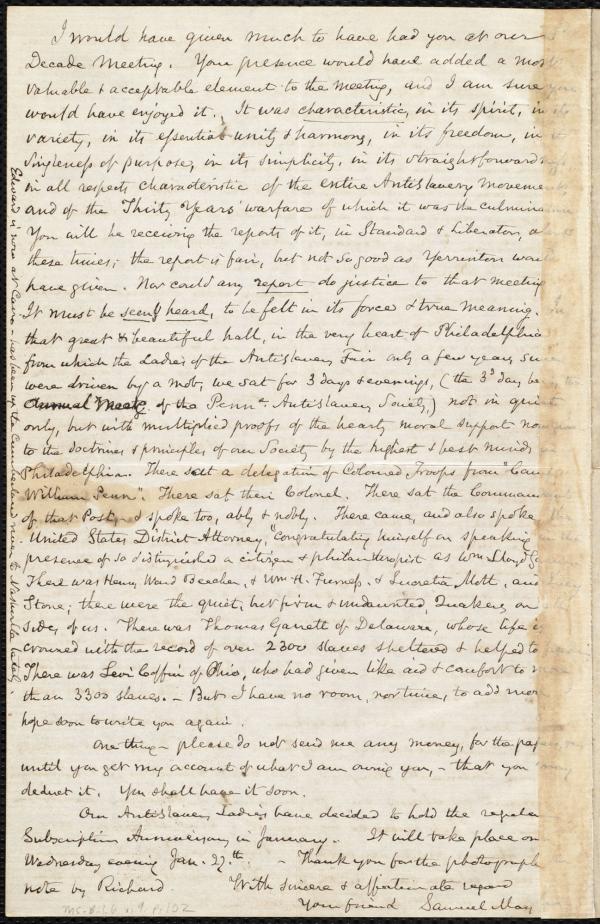 I would have given much to have had you at our
Decade Meeting. Your presence would have added a most
valuable & acceptable element to the meeting, and I am sure
would have enjoyed it. It was characteristic, in its spirit, in
variety, in its essential unity & harmony, in its freedom, in
singleness of purpose, in its simplicity, in its straightforward
in all respects characteristic of the entire Antislavery movemen
and of the Thirty Years' warfare of which it was the culmina
You will be receiving the reports of it, in Standard & Liberator, a
these times; the report is fair, but not so good as Yerrinton wou
have given. Nor could any report do justice to that meeting
It must be seen & heard, to be felt in its force & true meaning.
that great & beautiful hall, in the very heart of Philadelphia
from which the Ladies of the Antislavery Fair only a few years sin
were driven by a mob, we sat for 3 days & evenings, (the 3d day be
Annual Meetg. of the Penna. Antislavery Society,) not in quiet
only, but with multiplied proofs of the hearty moral support no
to the doctrines & principles of our Society by the highest & best minds
Philadelphia. There sat a delegation of Colored Troops from "Cam
William Penn". There sat their Colonel. There sat the Comman
of that Post, & spoke too, ably & nobly. There came, and also spoke
United States District Attorney, "congratulating himself on speaking
presence of so distinguished a citizen & philanthropist as Wm Lloyd Ga
There was Henry Ward Beecher, & Wm H. Furness, & Lucretia Mott, and
Stone; there were the quiet, but firm & undaunted, Quakers, on
sides of us. There was Thomas Garrett of Delaware, whose life is
crowned with the record of over 2300 slaves sheltered & helped to
There was Levi Coffin of Ohio, who had given like aid & comfort to m
than 3300 slaves. – But I have no room, nor time, to add mor
hope soon to write you again.
One thing – please do not send me any money, for the pap
until you get my account of what I am owing you, – that you
deduct it. You shall have it soon.
Our Antislavery Ladies have decided to hold the regular
Subscription Anniversary in January. It will take place on
Wednesday evening Jan. 27th. – Thank you for the photograph
note by Richard. With sincere & affectionate regard
Your friend Samuel May
Edward is now at Cairo – has been up the Cumberland river to Nashville lately.
Ms. B. 1.6 v. 9, p. 102